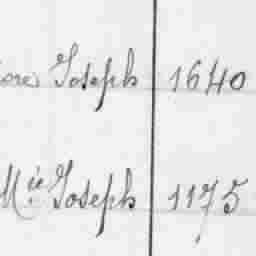 Joseph 1640
Mie Joseph 1175